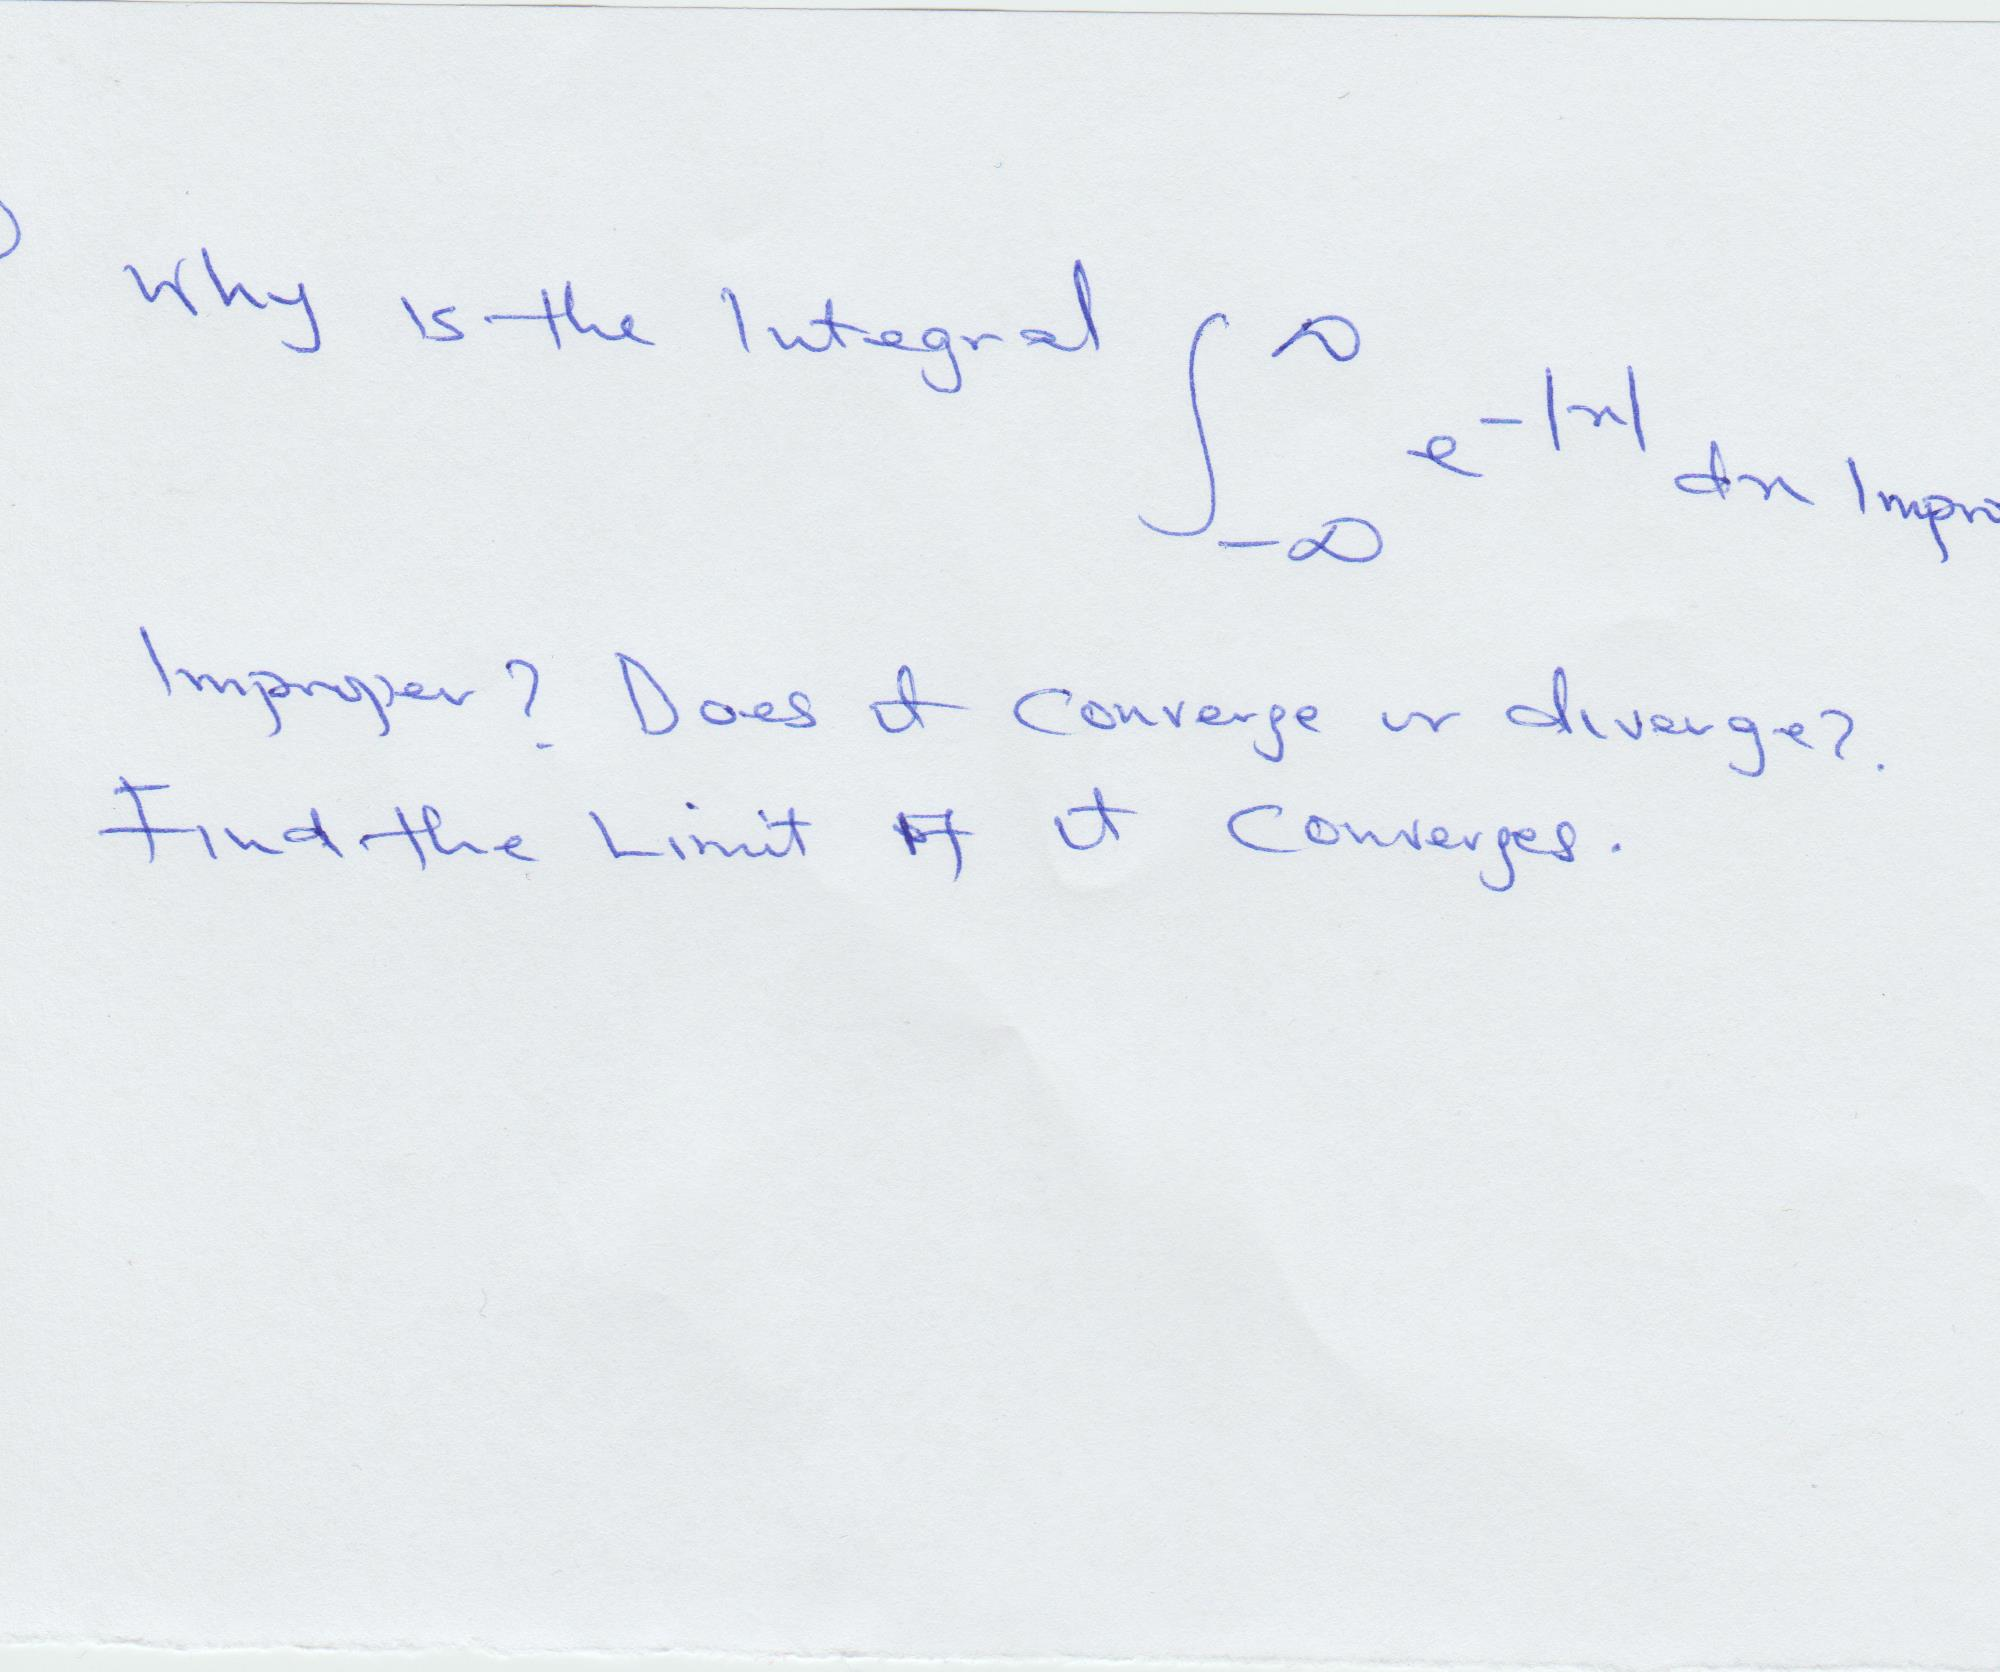 Why is the Integral ∫_{-∞}^{∞} e^{-|x|} dx Impro
Improper? Does it Converge or diverge?.
Find the Limit if it Converges.